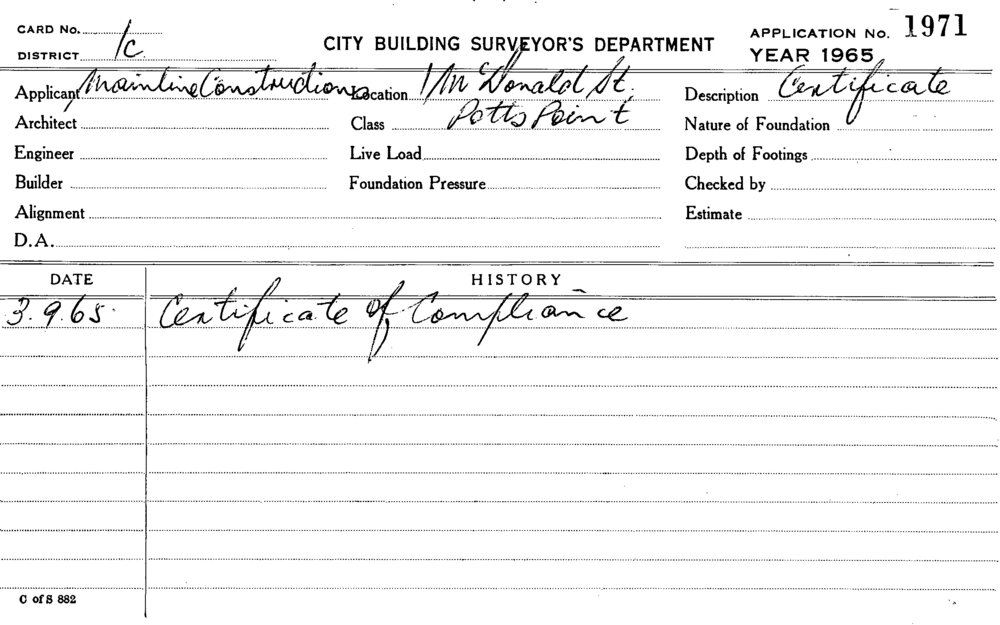 CARD No.
DISTRICT 1c
CITY BUILDING SURVEYOR'S DEPARTMENT
APPLICATION No. 1971
YEAR 1965
Applicant Mainline Constructions Location 1 McDonald St. Description Certificate
Architect Class Potts Point Nature of Foundation
Engineer Live Load Depth of Footings
Builder Foundation Pressure Checked by
Alignment Estimate
D.A.
DATE HISTORY
3.9.65. Certificate of Compliance
C of S 882